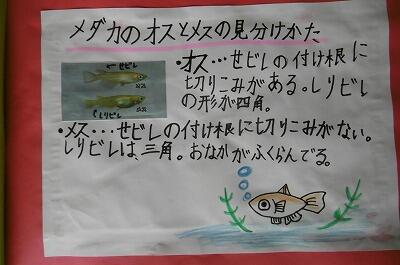 メダカのオスとメスの見分けかた
・オス…せビレの付け根に
切りこみがある。しりビレ
の形が四角。
←せビレ
しりビレ
・メス…せビレの付け根に切りこみがない。
しりビレは、三角。おなかがふくらんでる。